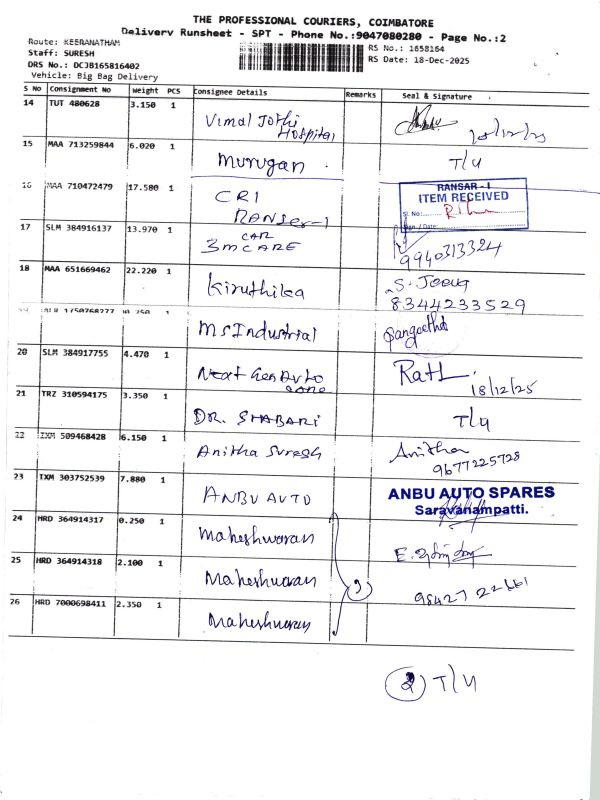 THE PROFESSIONAL COURIERS, COIMBATORE
Delivery Runsheet - SPT - Phone No.:9047080280 - Page No.:2
Route: KEERANATHAM
Staff: SURESH
DRS No.: DCJB165816402
Vehicle: Big Bag Delivery
RS No.: 1658164
RS Date: 18-Dec-2025
S No Consignment No Weight PCS Consignee Details Remarks Seal & Signature
14 TUT 480628 3.150 1 Vimal Jothi Hospital
15 MAA 713259844 6.020 1 Murugan T/4
16 MAA 710472479 17.580 1 CRI RANSER-1
RANSAR - I
ITEM RECEIVED
Sl. No:
Sign. / Date:
17 SLM 384916137 13.970 1 3M CAR CARE 9940313324
18 MAA 651669462 22.220 1 Kiruthika 8344233529
MS Industrial Sangeetha
20 SLM 384917755 4.470 1 Next Gen Auto zone 18/12/25
21 TRZ 310594175 3.350 1 DR. SHABARI T/4
22 IXM 509468428 6.150 1 Anitha Suresh Anitha
9677225728
23 IXM 303752539 7.880 1 ANBU AUTO
ANBU AUTO SPARES
Saravanampatti.
24 HRD 364914317 0.250 1 Maheshwaran
25 HRD 364914318 2.100 1 Maheshwaran 98427 22661
26 HRD 7000698411 2.350 1 Maheshwaran
2 T/4